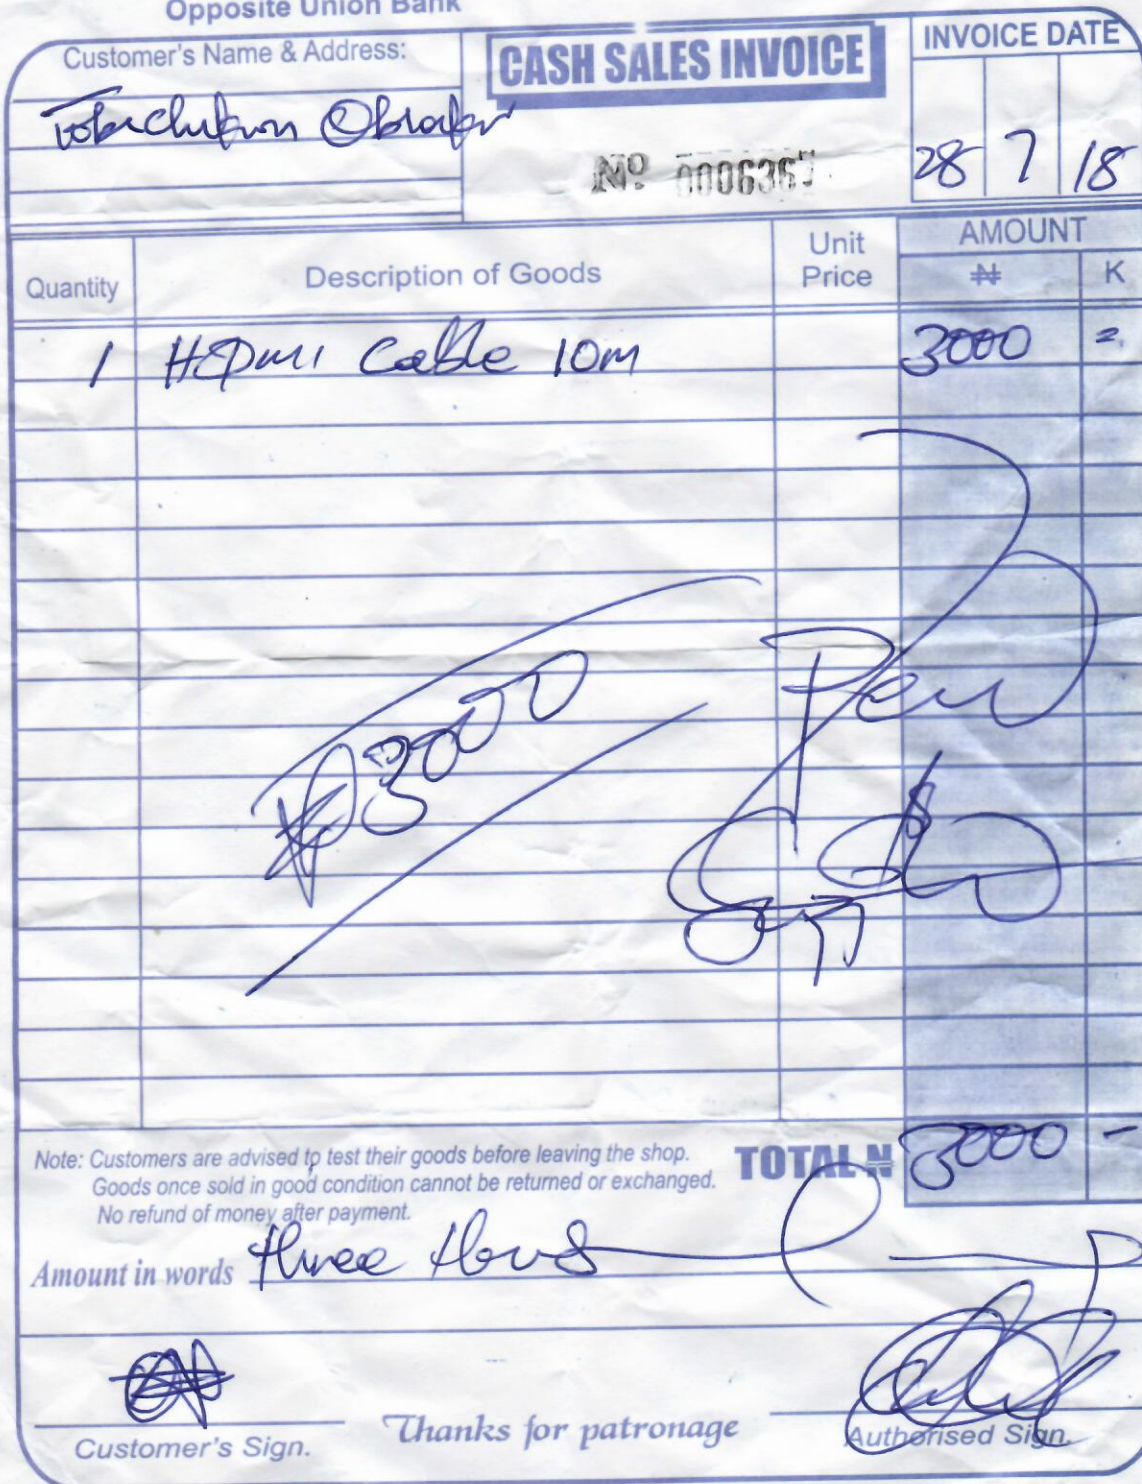 Opposite Union Bank
Customer's Name & Address:
CASH SALES INVOICE
INVOICE DATE
Nº 0006367
28 7 18
Quantity
Description of Goods
Unit Price
AMOUNT
₦ K
1 HDMI Cable 10M 3000 =
₦3000
Note: Customers are advised to test their goods before leaving the shop.
Goods once sold in good condition cannot be returned or exchanged.
No refund of money after payment.
TOTAL ₦ 3000 -
Amount in words three
Customer's Sign.
Thanks for patronage
Authorised Sign.